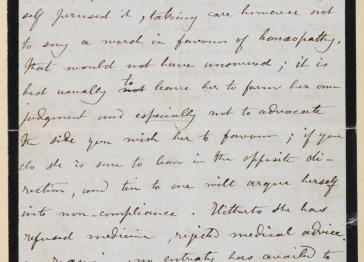 self perused it, taking care however not
to say a word in favour of homœopathy,
that would not have answered; it is
best usually to leave her to form her own
judgment and especially not to advocate
the side you wish her to favour; if you
do she is sure to lean in the opposite di-
rection, and ten to one will argue herself
into non-compliance. Hitherto she has
refused medicine, rejected medical advice.
no entreaty has availed to